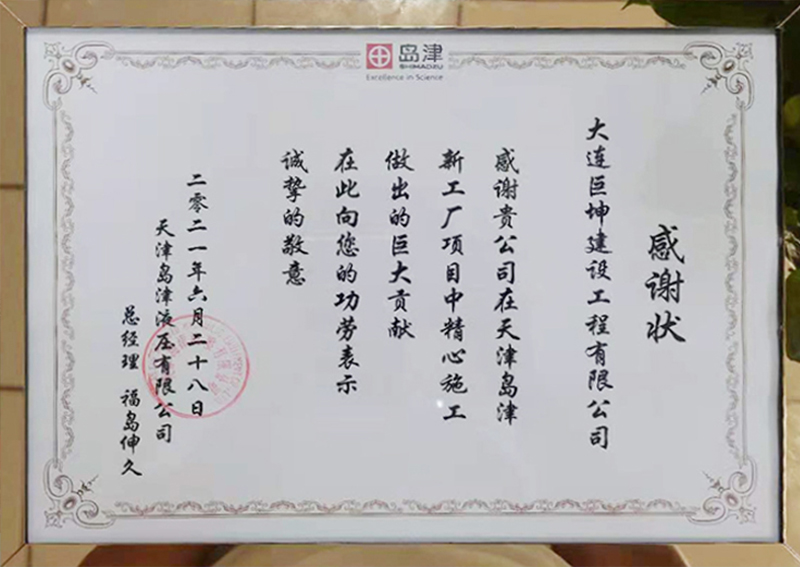 岛津
SHIMADZU
Excellence in Science
感谢状
大连巨坤建设工程有限公司
感谢贵公司在天津岛津
新工厂项目中精心施工
做出的巨大贡献
在此向您的功劳表示
诚挚的敬意
二零二一年六月二十八日
天津岛津液压有限公司
总经理 福岛伸久